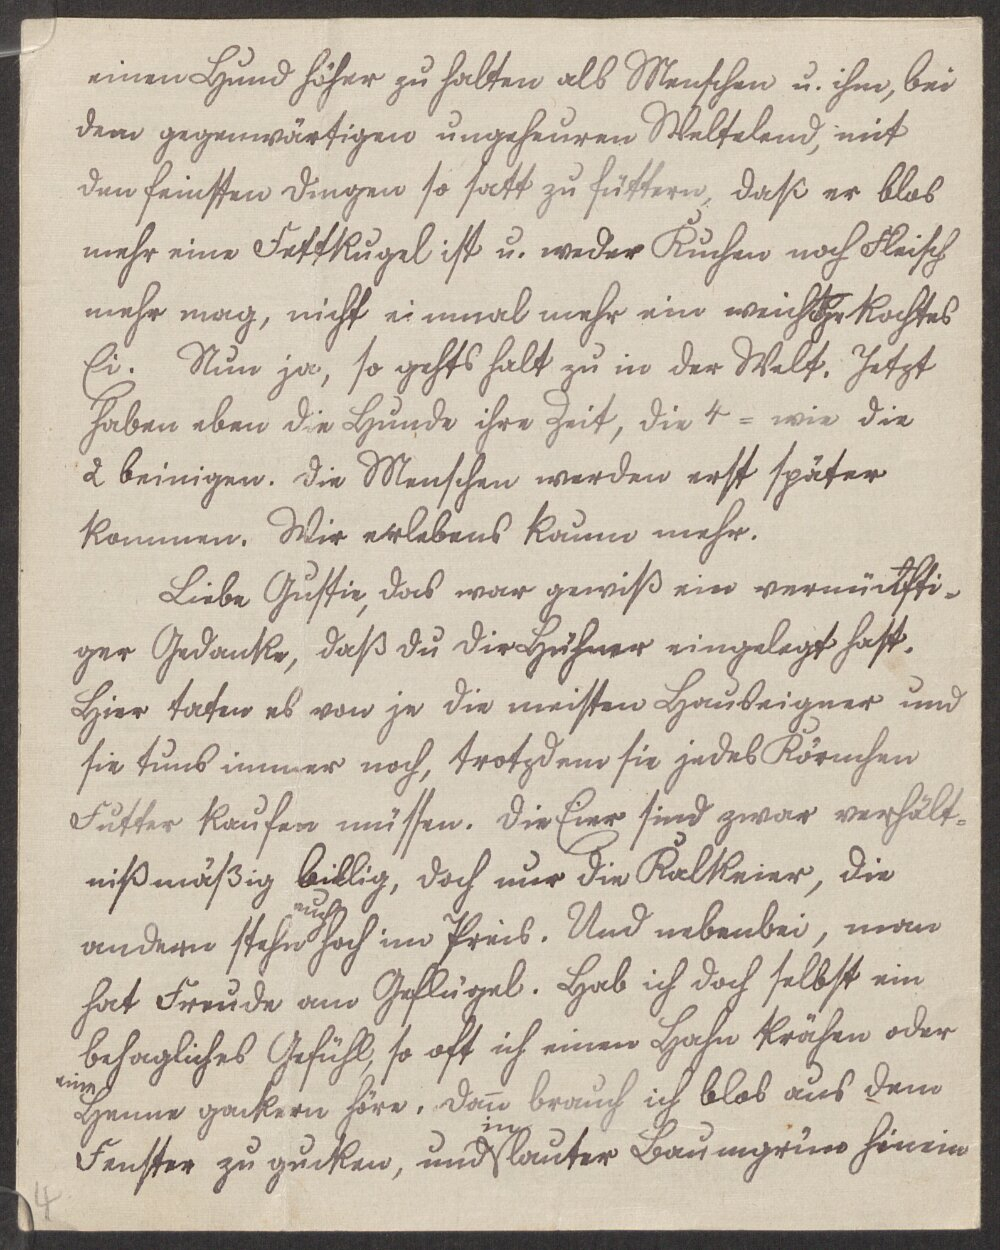 einen Hund höher zu halten als Menschen u. ihm, bei
dem gegenwärtigen ungeheuren Weltelend, mit
den feinsten Dingen so satt zu füttern, daß er blos
mehr eine Fettkugel ist u. weder Kuchen noch Fleisch
mehr mag, nicht einmal mehr ein weichgekochtes
Ei. Nun ja, so gehts halt zu in der Welt. Jetzt
haben eben die Hunde ihre Zeit, die 4 = wie die
2 beinigen. Die Menschen werden erst später
kommen. Wir erlebens kaum mehr.
Liebe Gustie, das war gewiß ein vernünfti-
ger Gedanke, daß du dir Hühner eingelegt hast.
Hier taten es von je die meisten Hauseigner und
sie tuns immer noch, trotzdem sie jedes Körnchen
Futter kaufen müssen. Die Eier sind zwar verhält-
nißmäßig billig, doch nur die Kalkeier, die
andern stehn auch hoch im Preis. Und nebenbei, man
hat Freude am Geflügel. Hab ich doch selbst ein
behagliches Gefühl, so oft ich einen Hahn krähen oder
eine Henne gackern höre. Dan̄ brauch ich blos aus dem
Fenster zu gucken, und in lauter Baumgrün hinein
4